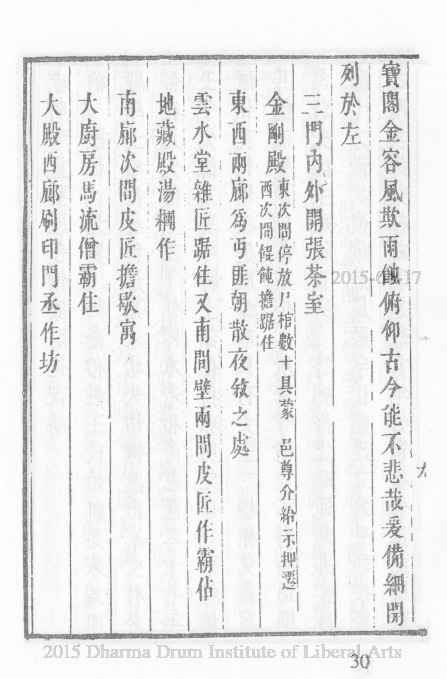 寶閣金容風欺雨蝕俯仰古今能不悲哉爰備細開
列於左
三門內外開張茶室
金剛殿東次間停放尸棺數十具蒙 邑尊介給示押遷
西次間餛飩擔踞住
東西兩廊為丐匪朝散夜斂之處
雲水堂雜匠踞住又南間壁兩間皮匠作霸佔
地藏殿湯糰作
南廊次間皮匠擔歇寓
大廚房馬流僧霸住
大殿西廊刷印門丞作坊
九
2015-
17
2015 Dharma Drum Institute of Liberal Arts
30